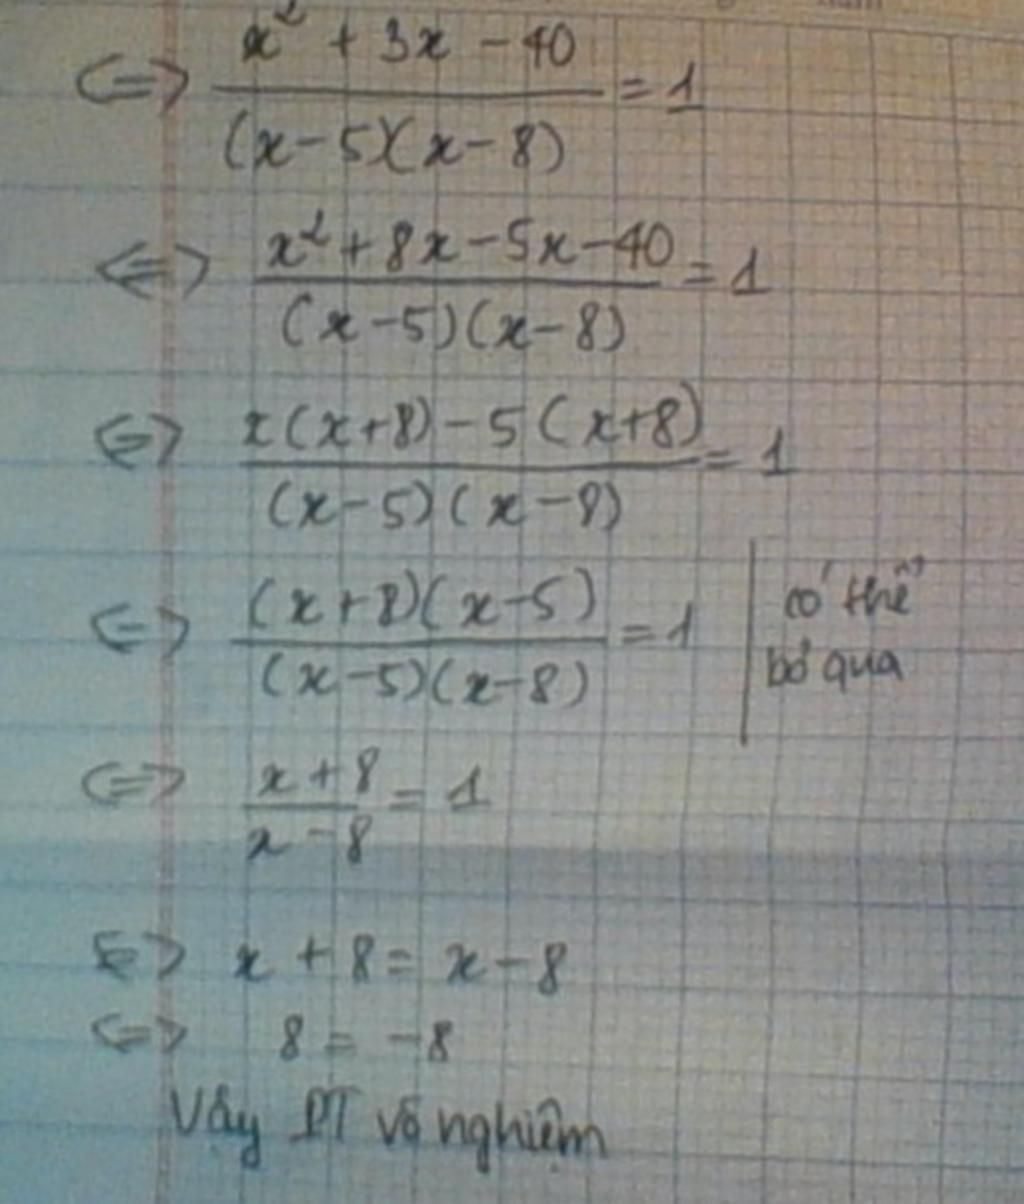 <=> x² + 3x - 40 / (x-5)(x-8) = 1
<=> x² + 8x - 5x - 40 / (x-5)(x-8) = 1
<=> x(x+8) - 5(x+8) / (x-5)(x-8) = 1
<=> (x+8)(x-5) / (x-5)(x-8) = 1 | có thể
bỏ qua
<=> x+8 / x-8 = 1
<=> x + 8 = x - 8
<=> 8 = -8
Vậy PT vô nghiệm